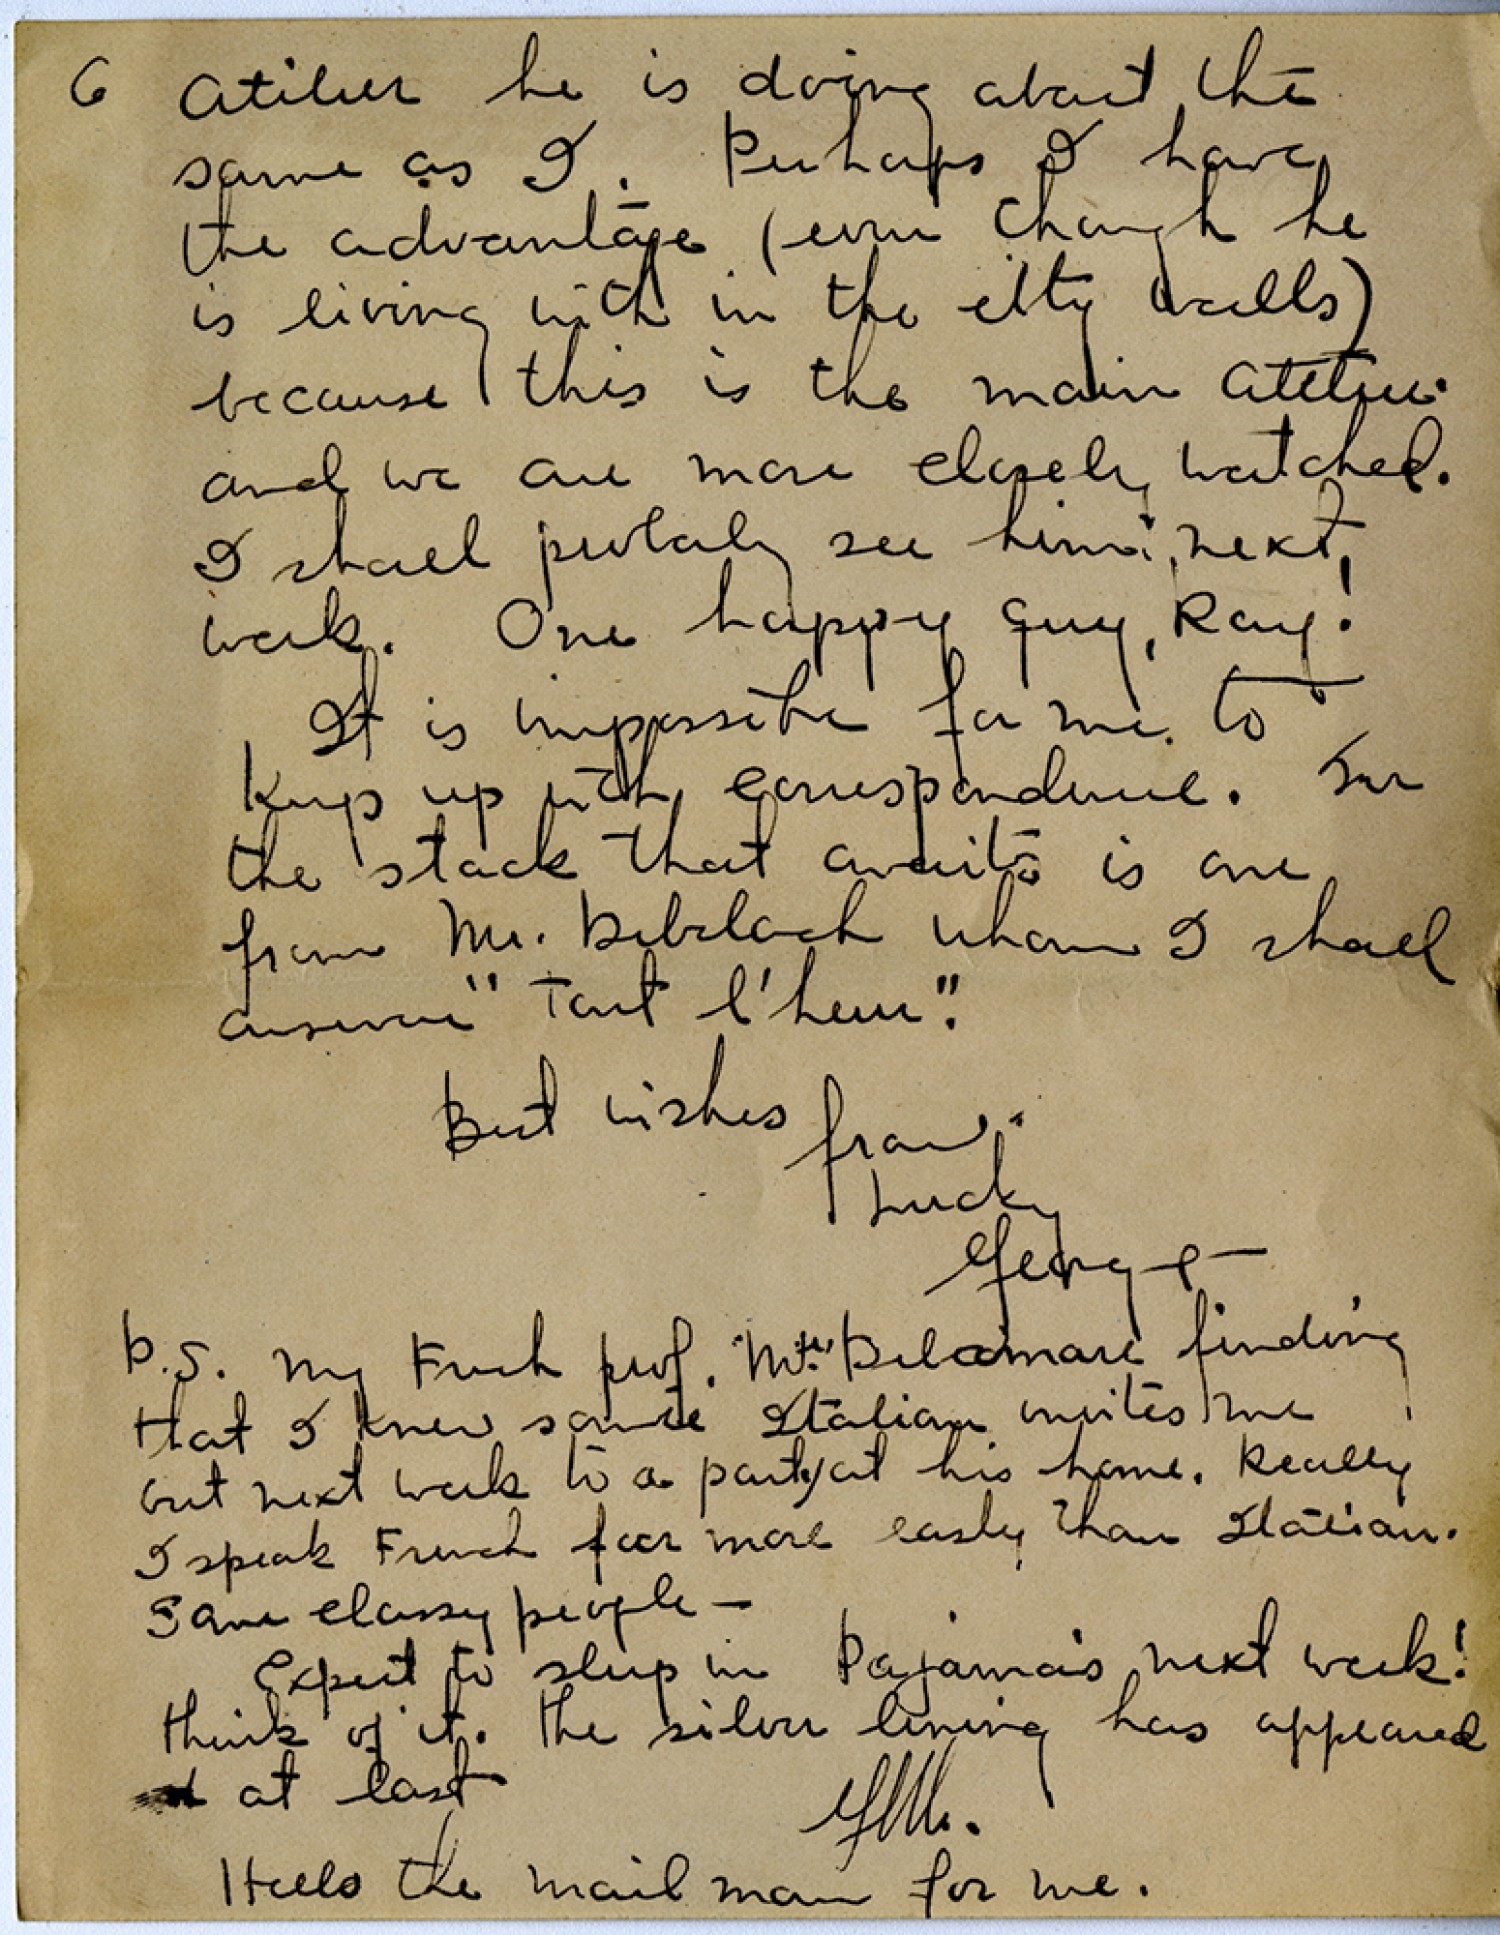 6 Atilier he is doing about the
same as I. Perhaps I have
the advantage (even though he
is living with in the city walls)
because this is the main Atelier
and we are more closely watched.
I shall probaly see him next
week. One happy guy, Ray!
It is impossible for me to
keep up with correspondence. In
the stack that awaits is one
from Mr. whom I shall
answer "Tout l'heur".
Best wishes from
Lucky
George
P.S. My French prof. Delamare finding
that I knew some Italian invites me
out next week to a party at his home. Really
I speak French far more easly than Italian.
Some classy people —
Expect to sleep in Pajamas next week!
think of it. The silver lining has appeared
at last
Hello the mail man for me.